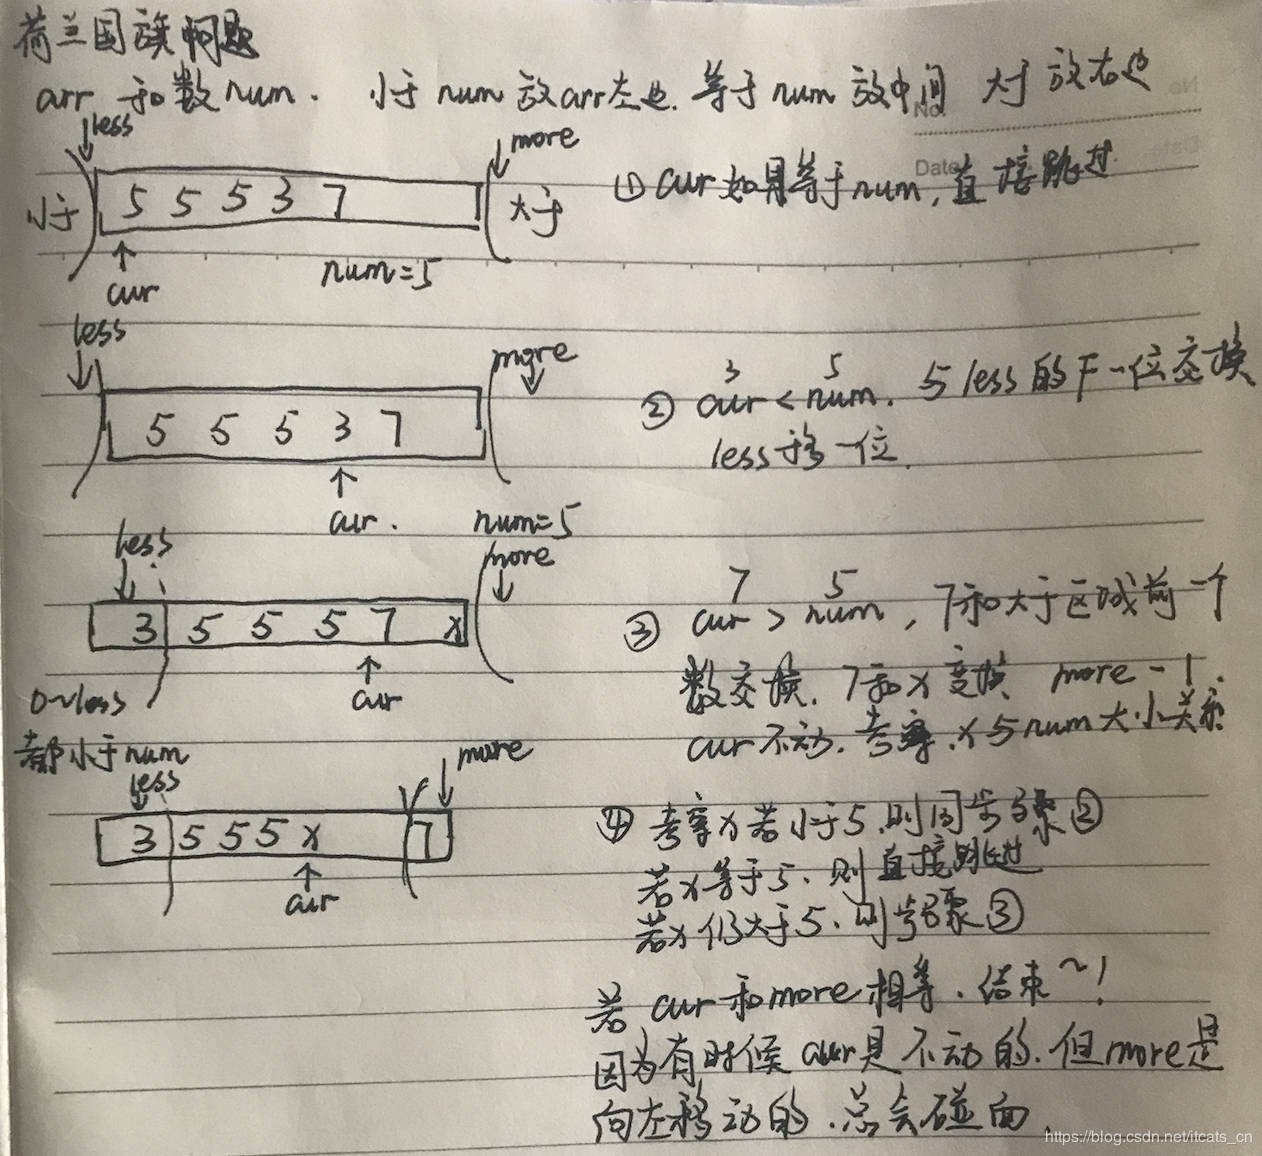 荷兰国旗问题
arr 和数num. 小于 num 放arr左边. 等于 num 放中间 大于 放右边
No.
Date
less
more
小于
5 5 5 3 7
大于
cur
num=5
① cur如果等于num,直接跳过
less
more
5 5 5 3 7
cur.
num=5
3 5
② cur < num. 与 less 的下一位交换
less 移一位.
less
more
3 5 5 5 7 x
cur
0~less
都小于num
7 5
③ cur > num, 7和大于区域前一个
数交换. 7和x交换 more - 1.
cur不动. 考察.x与num大小关系
less
more
3 5 5 5 x 7
cur
④ 考察x若小于5.则同步骤②
若x等于5.则直接跳过
若x仍大于5.则步骤③
若 cur和more相等.结束~!
因为有时候cur是不动的.但more是
向左移动的.总会碰面.
https://blog.csdn.net/itcats_cn